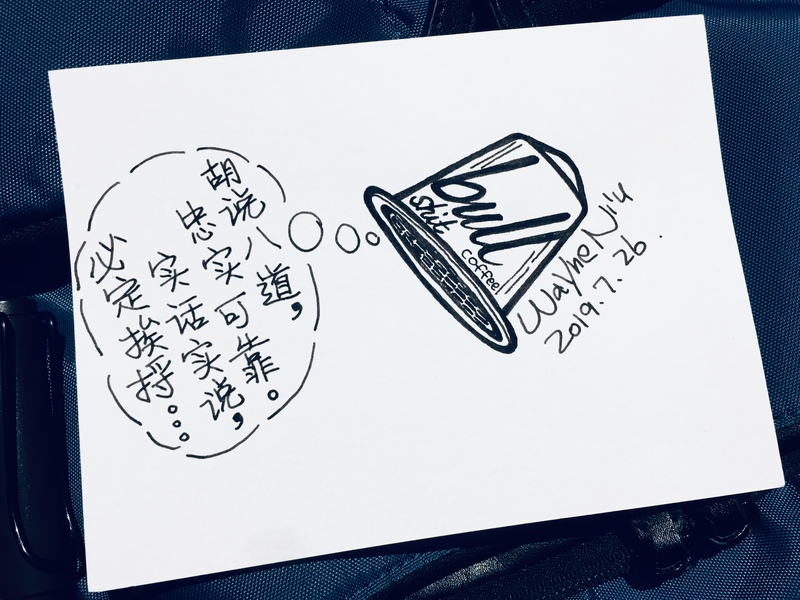 胡说八道，
忠实可靠。
实话实说，
必定挨捋。。。
bull
shit
coffee
Wayne Niu
2019.7.26.